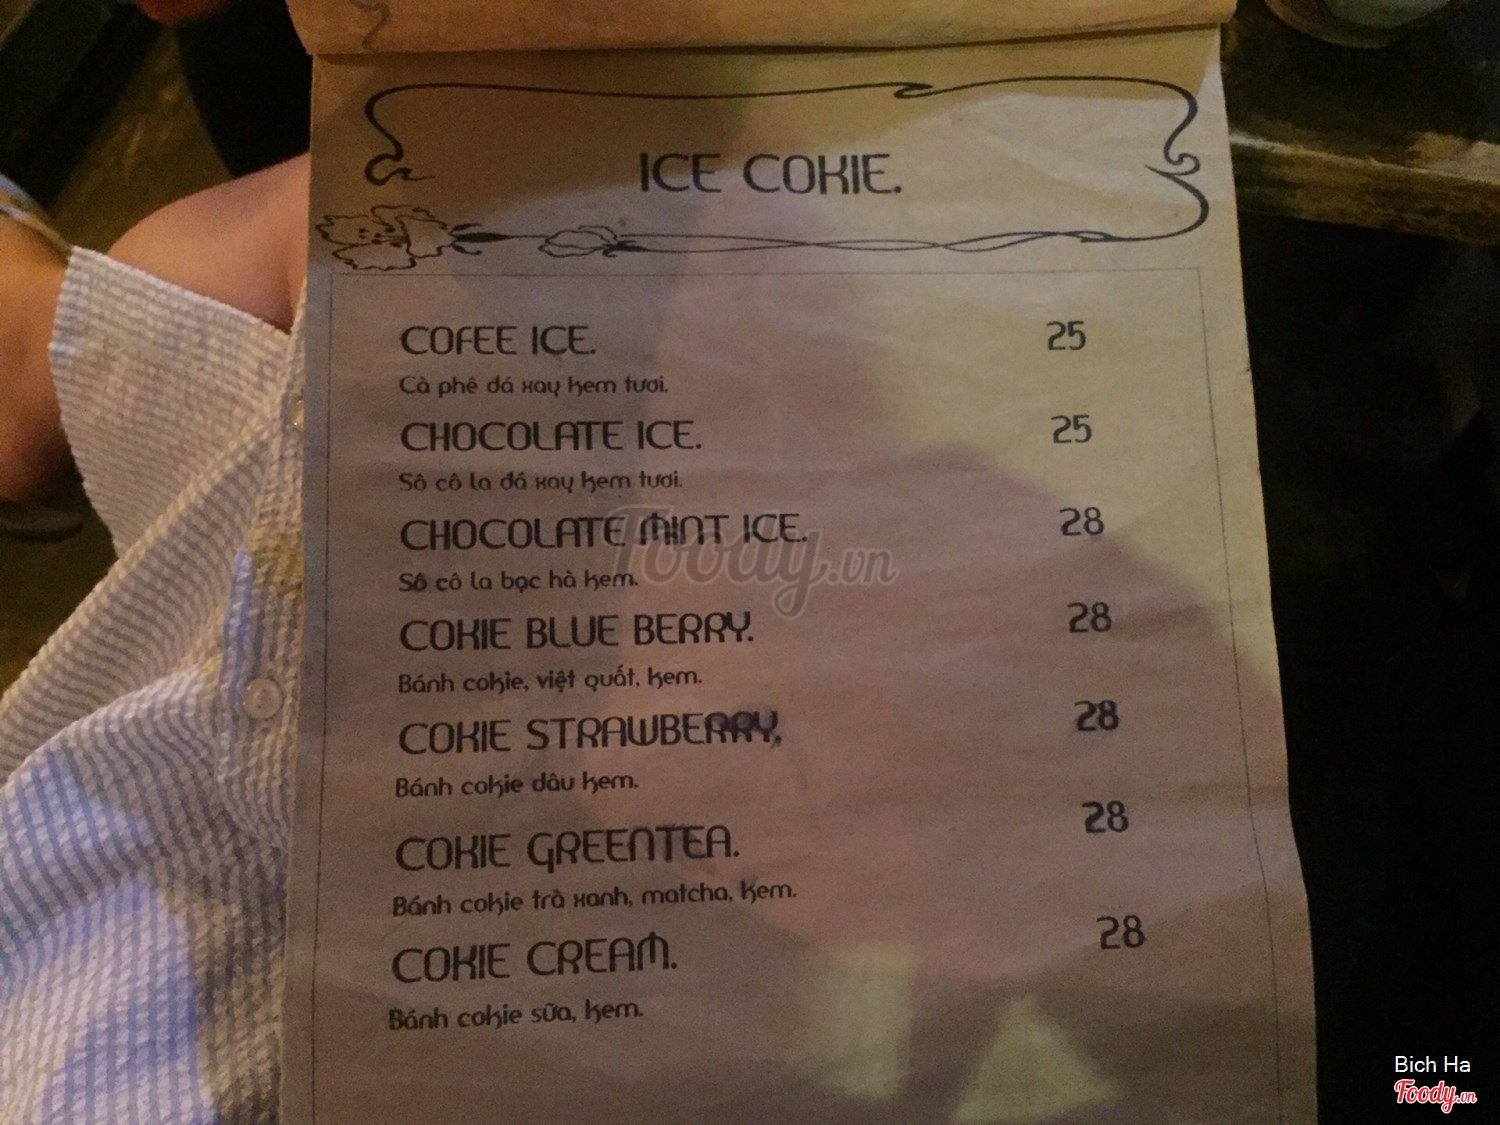 ICE COKIE.
COFEE ICE. 25
Cà phê đá xay kem tươi.
CHOCOLATE ICE. 25
Sô cô la đá xay kem tươi.
CHOCOLATE MINT ICE. 28
Sô cô la bạc hà kem.
COKIE BLUE BERRY. 28
Bánh cokie, việt quất, kem.
COKIE STRAWBERRY, 28
Bánh cokie dâu kem.
COKIE GREENTEA. 28
Bánh cokie trà xanh, matcha, kem.
COKIE CREAM. 28
Bánh cokie sữa, kem.
Foody.vn
Bich Ha
Foody.vn